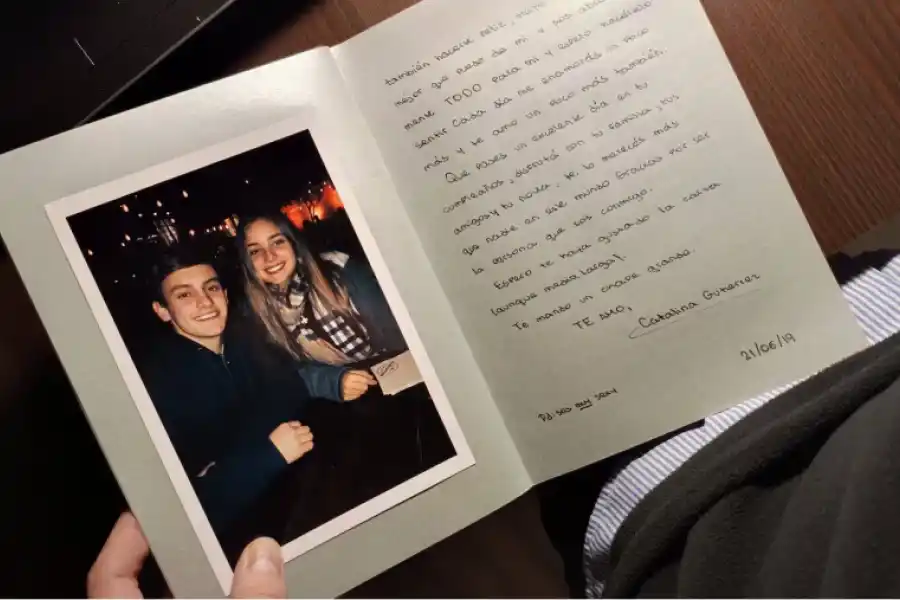 también hacerte feliz,
mejor que puedo de mi y sos
mente TODO para mi y espero hacértelo
sentir. Cada día me enamorás un poco
más y te amo un poco más también.
Que pases un excelente día en tu
cumpleaños, disfrutá con tu familia, tus
amigos y tu novia, te lo merecés más
que nadie en este mundo. Gracias por ser
la persona que sos conmigo.
Espero te haya gustado la carta
(aunque media larga).
Te mando un chape grande.
TE AMO,
Catalina Gutierrez
21/06/19
Pd: sos